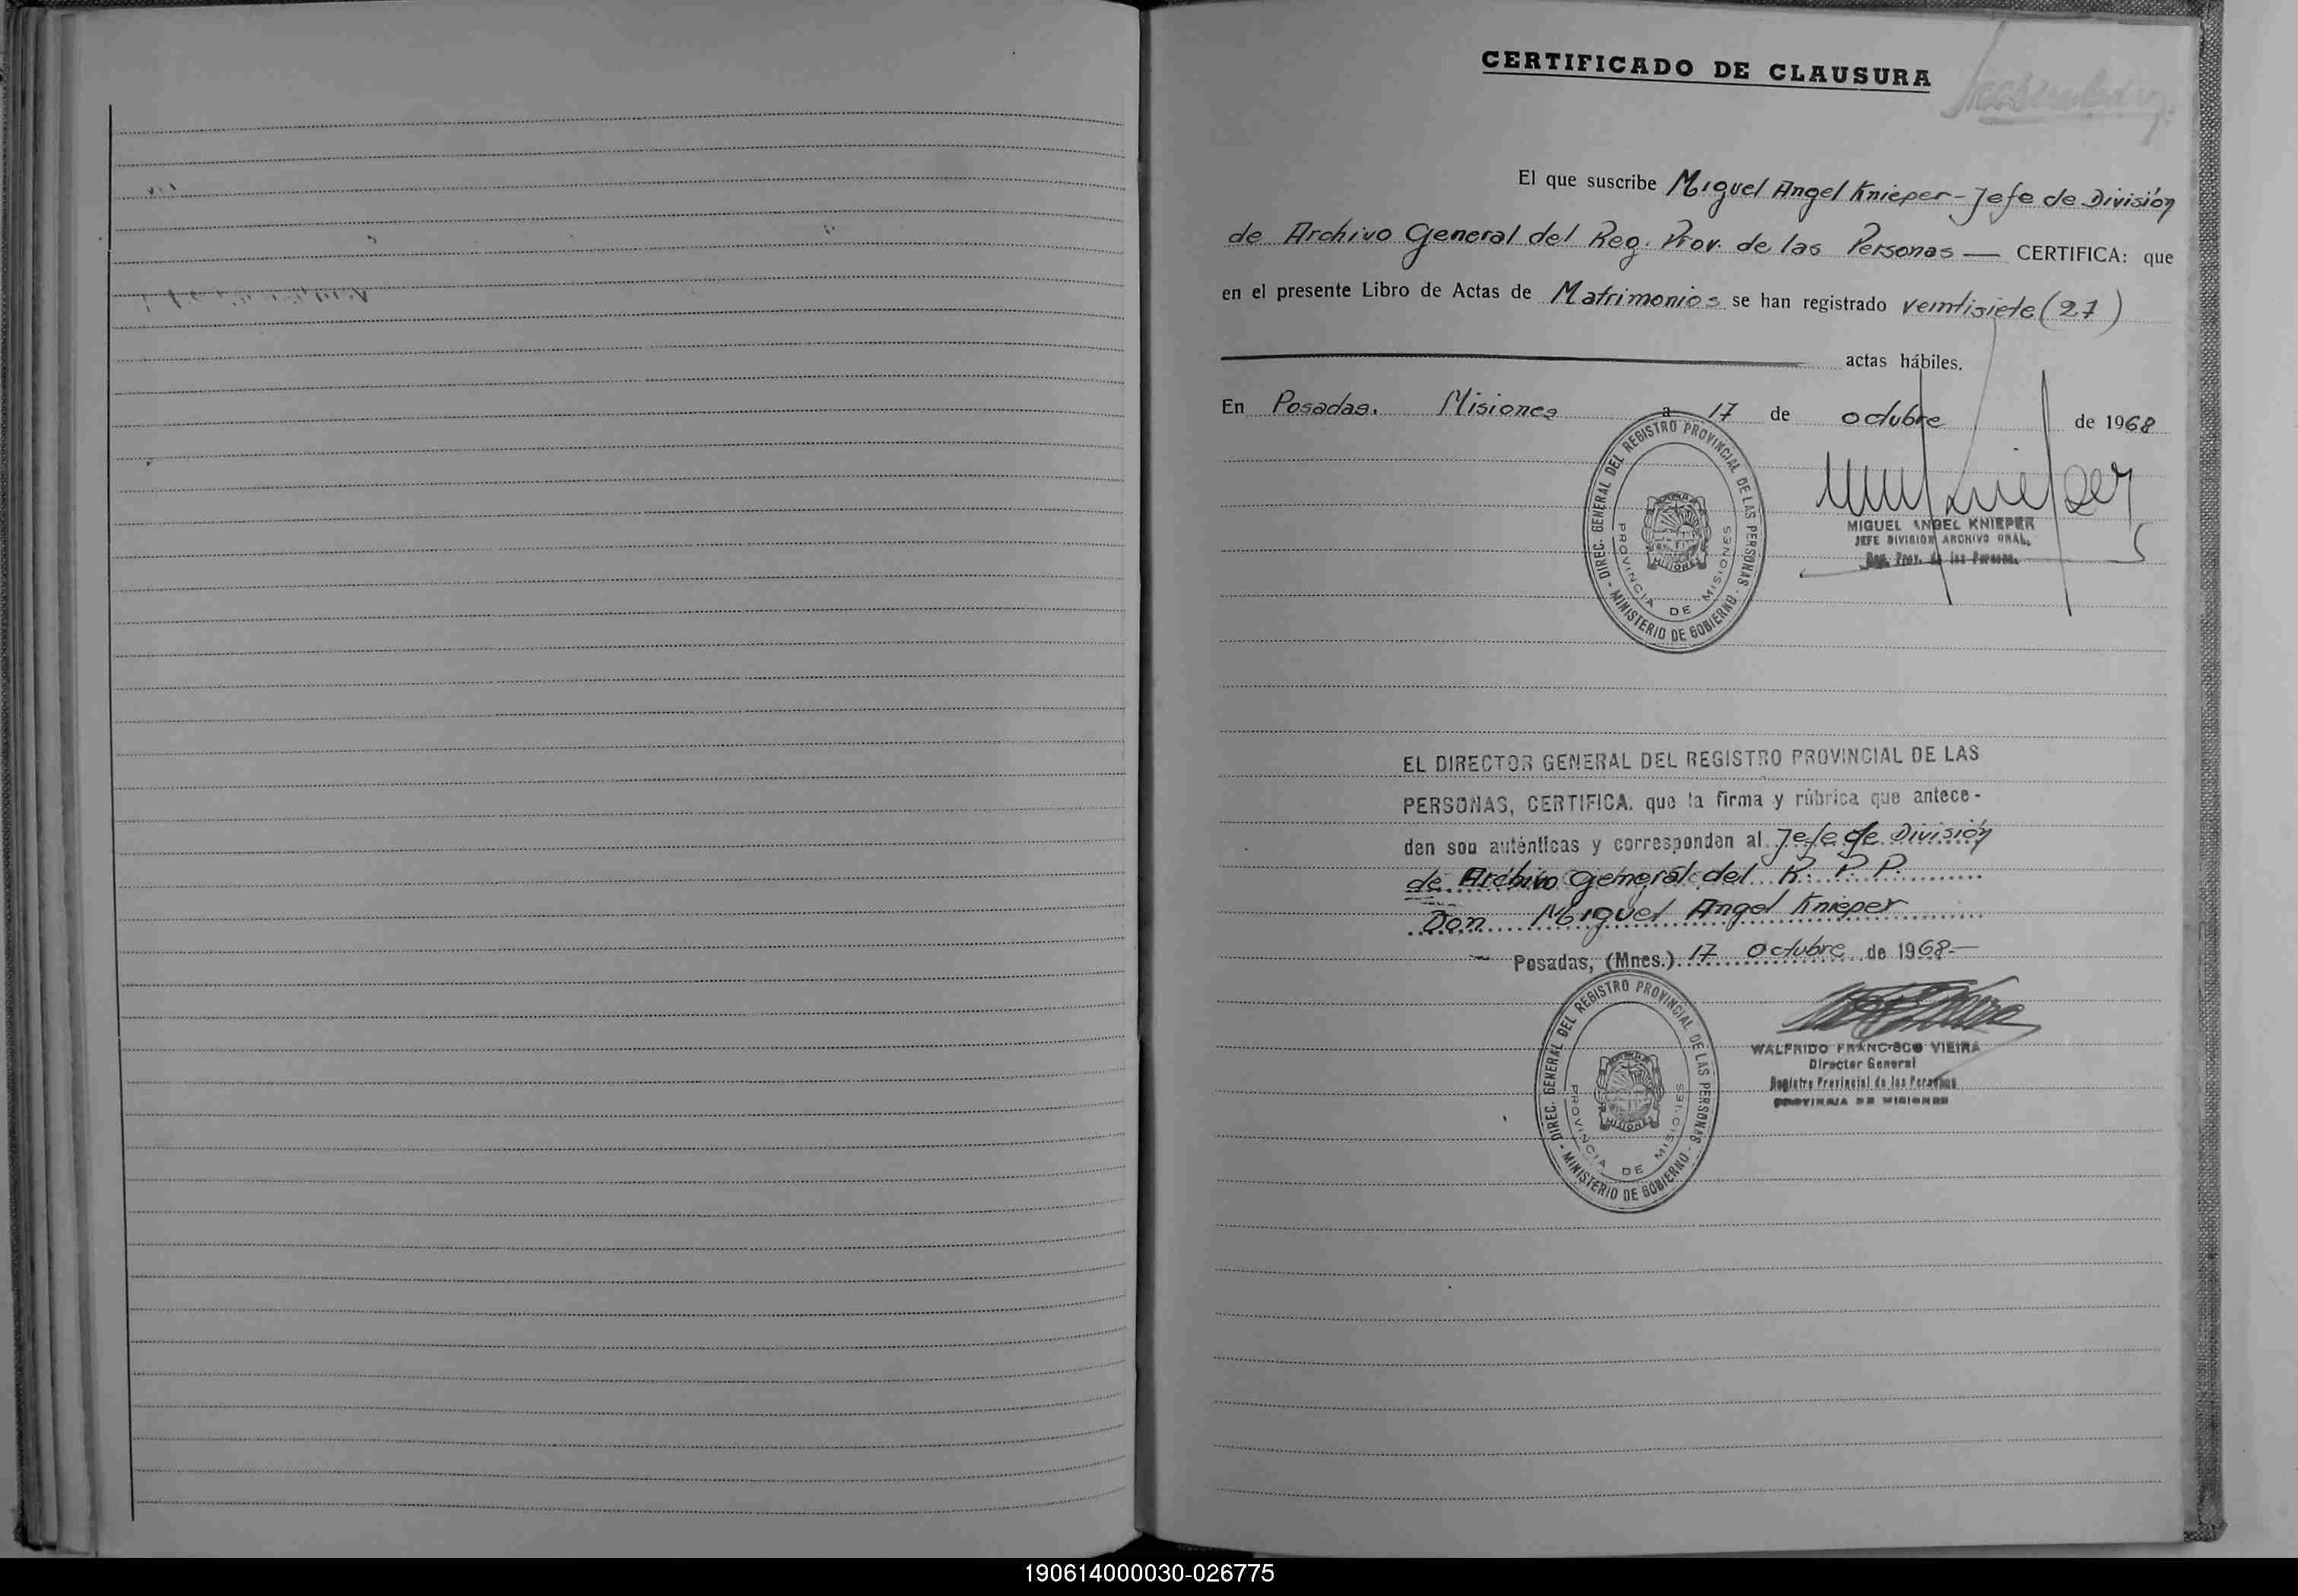 CERTIFICADO DE CLAUSURA
El que suscribe Miguel Angel Knieper - Jefe de División
de Archivo General del Reg. Prov. de las Personas — CERTIFICA: que
en el presente Libro de Actas de Matrimonios se han registrado veintisiete (27)
actas hábiles.
En Posadas. Misiones a 17 de octubre de 1968
DIREC. GENERAL DEL REGISTRO PROVINCIAL DE LAS PERSONAS - MINISTERIO DE GOBIERNO -
PROVINCIA DE MISIONES
MIGUEL ANGEL KNIEPER
JEFE DIVISION ARCHIVO GRAL.
Reg. Prov. de las Persona.
EL DIRECTOR GENERAL DEL REGISTRO PROVINCIAL DE LAS
PERSONAS, CERTIFICA. que la firma y rúbrica que antece-
den son auténticas y corresponden al Jefe de División
de Archivo General del R. P. P.
Don Miguel Angel Knieper
Posadas, (Mnes.) 17 Octubre de 1968.—
DIREC. GENERAL DEL REGISTRO PROVINCIAL DE LAS PERSONAS - MINISTERIO DE GOBIERNO -
PROVINCIA DE MISIONES
WALFRIDO FRANCISCO VIEIRA
Director General
Registro Provincial de las Personas
PROVINCIA DE MISIONES
190614000030-026775